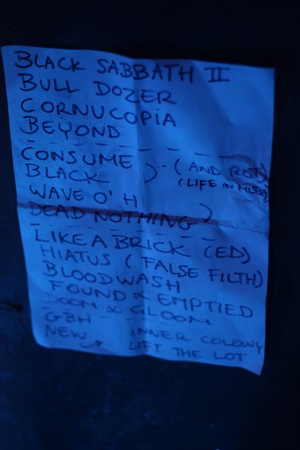 BLACK SABBATH II
BULL DOZER
CORNUCOPiA
BEYOND
CONSUME ) · (AND ROT)
BLACK (LIFE IN
WAVE O' H )
DEAD NOTHING
LIKE A BRICK (ED)
HIATUS (FALSE FILTH)
BLOODWASH
FOUND & EMPTIED
DOOM & GLOOM
GBH
NEW → INNER COLONY
LIFT THE LOT